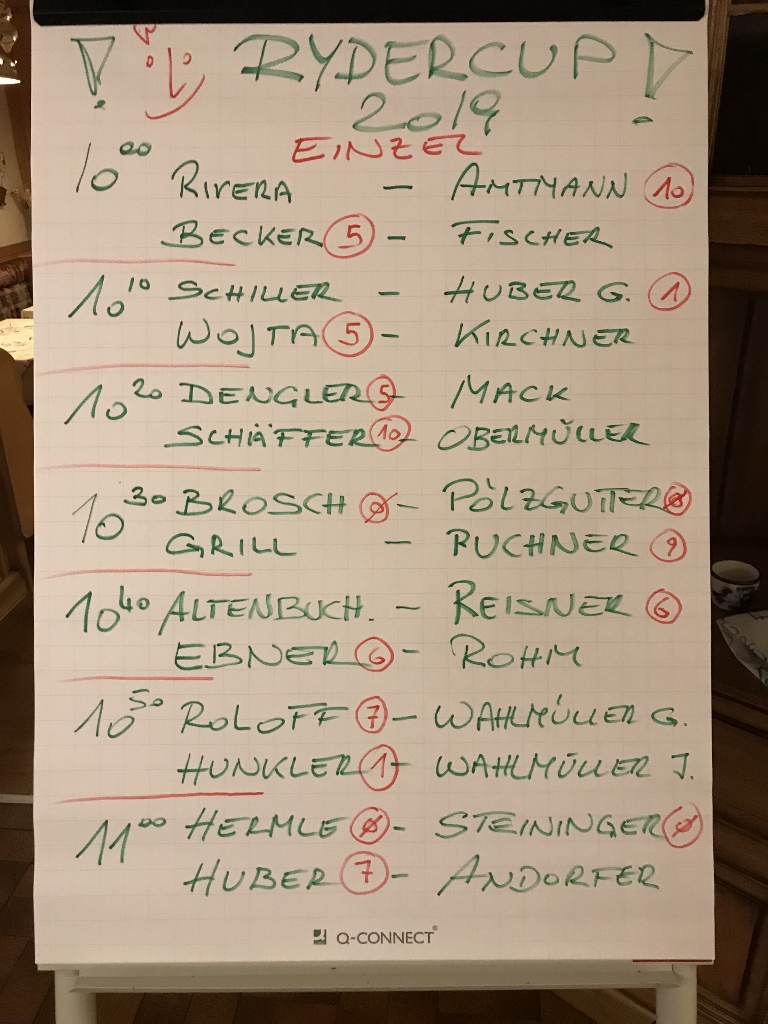 ! RYDERCUP !
2019
EINZEL
10⁰⁰ RIVERA - AMTMANN 10
BECKER 5 - FISCHER
10¹⁰ SCHILLER - HUBER G. 1
WOJTA 5 - KIRCHNER
10²⁰ DENGLER 5 - MACK
SCHÄFFER 10 - OBERMÜLLER
10³⁰ BROSCH Ø - PÖLZGUTTER Ø
GRILL - PUCHNER 9
10⁴⁰ ALTENBUCH. - REISNER 6
EBNER 6 - ROHM
10⁵⁰ ROLOFF 7 - WAHLMÜLLER G.
HUNKLER 1 - WAHLMÜLLER J.
11⁰⁰ HERMLE Ø - STEININGER Ø
HUBER 7 - ANDORFER
Q-CONNECT®